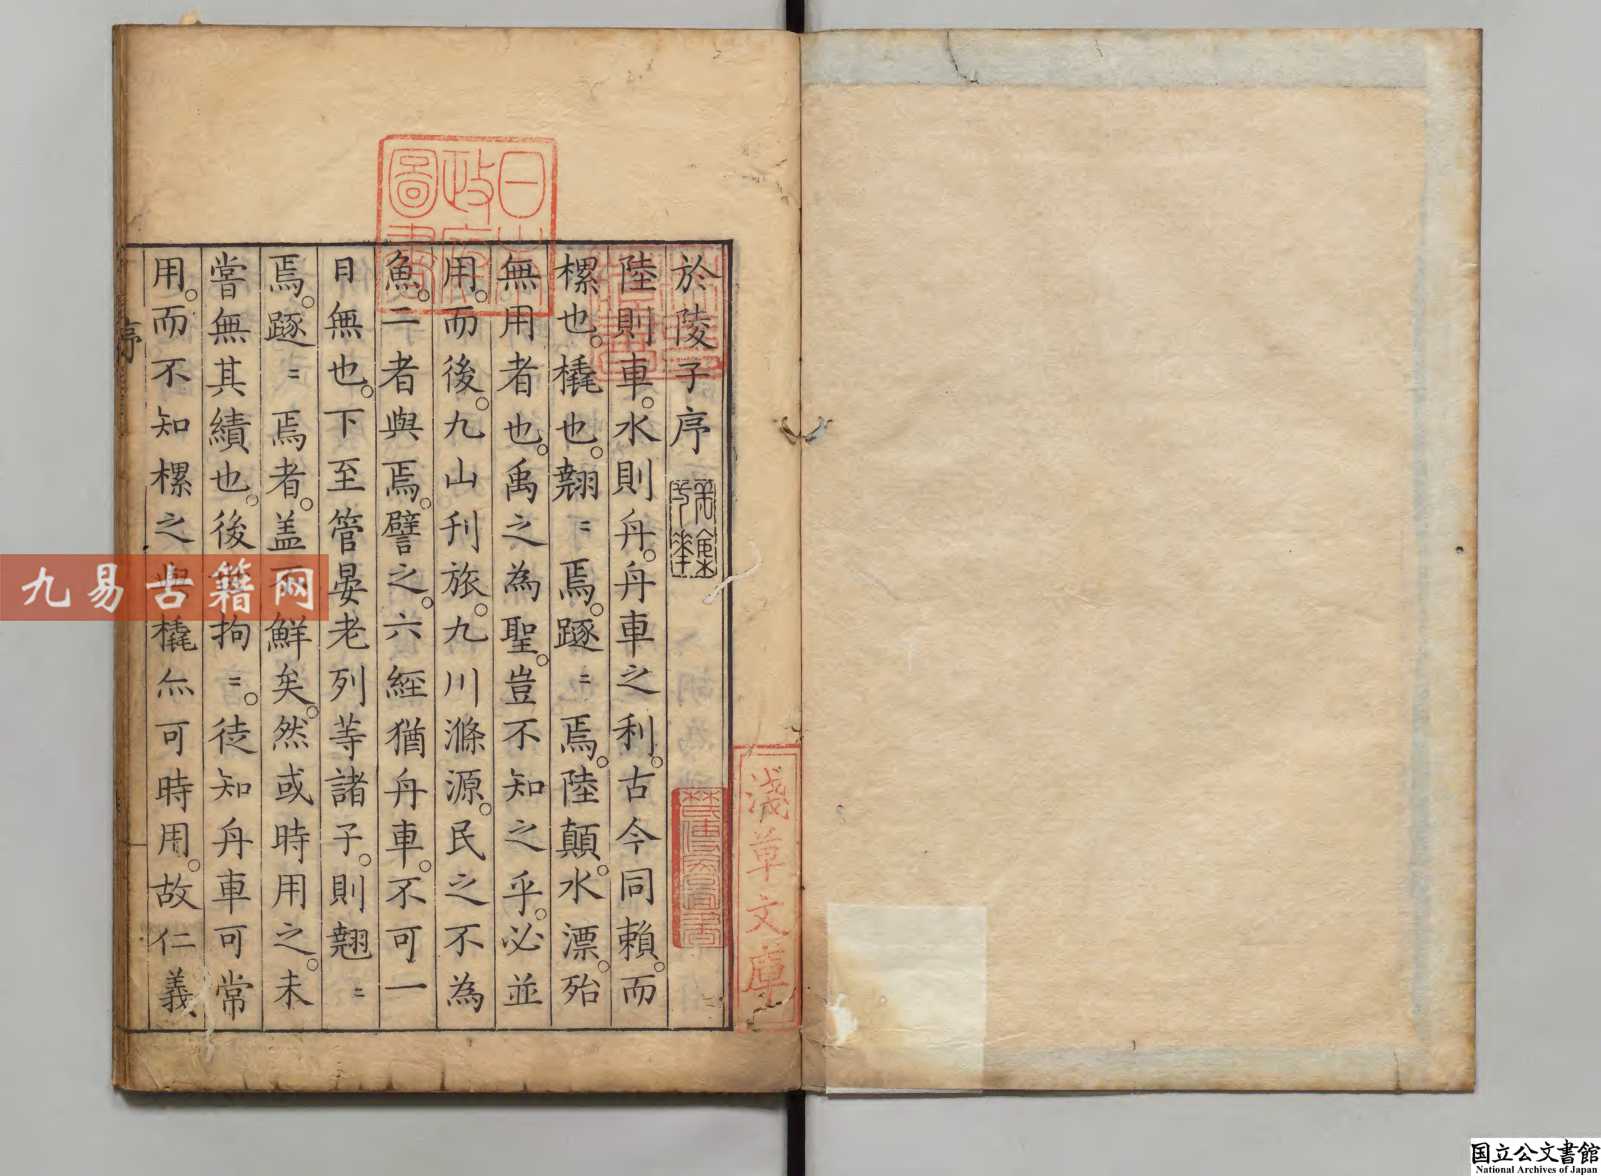 於陵子序
陸則車。水則舟。舟車之利。古今同賴。而
樏也。橇也。翹〻焉。蹘〻焉。陸顛。水漂。殆
無用者也。禹之為聖。豈不知之乎。必並
用。而後。九山刋旅。九川滌源。民之不為
魚。二者與焉。譬之。六經猶舟車。不可一
日無也。下至管晏老列等諸子。則翹〻
焉。蹘〻焉者。盖鮮矣。然或時用之。未
嘗無其績也。後拘〻。徒知舟車可常
用。而不知樏之橇亦可時用。故仁義
序
日本政府圖書
淺草文庫
九易古籍网
国立公文書館
National Archives of Japan